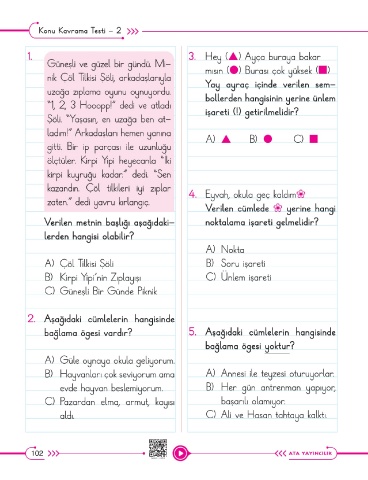 Konu Kavrama Testi - 2
1.
Güneşli ve güzel bir gündü. Mi-
nik Çöl Tilkisi Şöli, arkadaşlarıyla
uzağa zıplama oyunu oynuyordu.
"1, 2, 3 Hooopp!" dedi ve atladı
Şöli. "Yaşasın, en uzağa ben at-
ladım!" Arkadaşları hemen yanına
gitti. Bir ip parçası ile uzunluğu
ölçtüler. Kirpi Yipi heyecanla "İki
kirpi kuyruğu kadar." dedi. "Sen
kazandın. Çöl tilkileri iyi zıplar
zaten." dedi yavru kırlangıç.
Verilen metnin başlığı aşağıdaki-
lerden hangisi olabilir?
A) Çöl Tilkisi Şöli
B) Kirpi Yipi'nin Zıplayışı
C) Güneşli Bir Günde Piknik
2. Aşağıdaki cümlelerin hangisinde
bağlama ögesi vardır?
A) Güle oynaya okula geliyorum.
B) Hayvanları çok seviyorum ama
evde hayvan beslemiyorum.
C) Pazardan elma, armut, kayısı
aldı.
3. Hey (▲) Ayça buraya bakar
mısın (●) Burası çok yüksek (■)
Yay ayraç içinde verilen sem-
bollerden hangisinin yerine ünlem
işareti (!) getirilmelidir?
A) ▲ B) ● C) ■
4. Eyvah, okula geç kaldım
Verilen cümlede yerine hangi
noktalama işareti gelmelidir?
A) Nokta
B) Soru işareti
C) Ünlem işareti
5. Aşağıdaki cümlelerin hangisinde
bağlama ögesi yoktur?
A) Annesi ile teyzesi oturuyorlar.
B) Her gün antrenman yapıyor,
başarılı olamıyor.
C) Ali ve Hasan tahtaya kalktı.
102
ATA YAYINCILIK